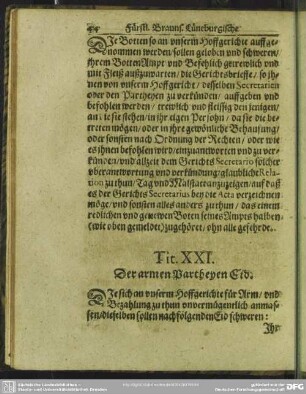 Fürstl. Braunß. Lüneburgische
DJe Botten so an unserm Hoffgerichte auffge-
nommen werden/sollen geloben und schweren/
ihrem Botten Ampt und Befehlich getrewlich und
mit Fleiß außzuwarten/die Gerichtsbrieffe/so ih-
nen von unserm Hoffgericht/desselben Secretarien
oder den Partheyen zu verkünden/auffgeben und
befohlen werden/trewlich und fleissig den jenigen/
an die sie stehen/in ihr eigen Persohn/da sie die be-
tretten mögen/oder in ihre gewönliche Behausung/
oder sonsten nach Ordnung der Rechten/oder wie
es ihnen befohlen wird/einzuantworten und zu ver-
künden/und allzeit dem Gerichts Secretario solcher
uberantwortung und verkündung/glaubliche Rela-
tion zu thun/Tag und Malstatt anzuzeigen/auf daß
es der Gerichts Secretarius bey die Acta verzeichnen
möge/und sonsten alles anders zu thun/das einem
redlichen und getrewen Boten seines Ampts halben/
(wie oben gemeldet) zugehöret/ohn alle gefehrde.
Tit. XXI.
Der armen Partheyen Eid.
DJe sich an unserm Hoffgerichte für Arm/und
Bezahlung zu thun unvermügentlich anmas-
sen/dieselben sollen nachfolgenden Eid schweren:
Jhr